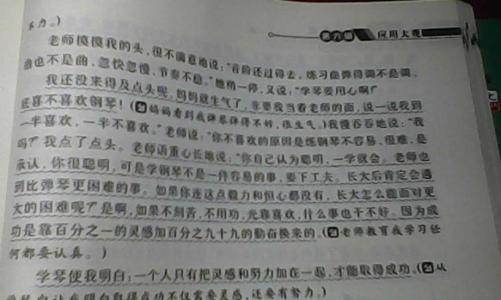 力。)
第六编 应用大观
老师摸摸我的头,很不满意地说:“音阶还过得去,练习曲弹得调不是调,
曲也不是曲,忽快忽慢,节奏不稳。”她稍一停,又说:“学琴要用心啊!”
我还没来得及点头呢,妈妈就生气了,非要我当着老师的面,说一说我到
底喜不喜欢钢琴!(妈妈看到我弹琴弹得不好,很生气。)我慢吞吞地说:“我
一半喜欢,一半不喜欢。”老师说:“你不喜欢的原因是练钢琴不容易,很难,是
吗?”我点了点头。老师语重心长地说:“你自己认为聪明,一学就会。老师也
承认,你很聪明,可是学钢琴不是一件容易的事,要下工夫。长大后肯定会遇
到比弹琴更困难的事。如果你连这点毅力和恒心都没有,长大怎么能面对更
大的困难呢?”是啊,如果不刻苦,不用功,光靠喜欢,什么事也干不好。因为成
功是靠百分之一的灵感加百分之九十九的勤奋换来的。(老师教育我学习任
何都要认真。)
学琴使我明白:一个人只有把灵感和努力加在一起,才能取得成功。(从
让我明白取得成功不仅需要灵感,还要有努力。)